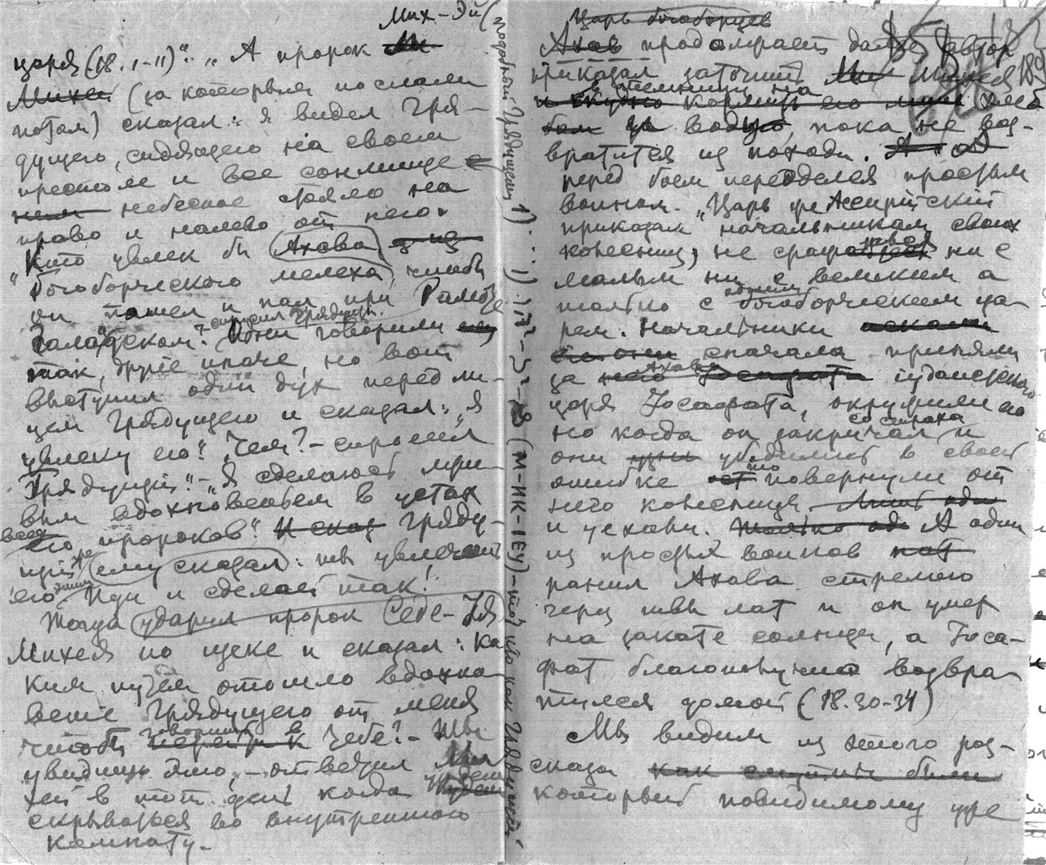 Мих-Эй (
царя (18. 1-11): „А пророк
Михей (за которым послали
потом) сказал: я видел Гря-
дущего, сидящего на своем
престоле и все сонмище
небесное стояло на
право и налево от него.
"Кто увлек бы Ахава
богоборческого мелеха, чтобы
он пошел и пал при Рамоте
Галадском? спросил Грядущий. Одни говорили
так, другие иначе, но вот
выступил один дух перед ли-
цем Грядущего и сказал: „Я
увлеку его". Чем? – спросил
Грядущий. – „Я сделаюсь лжи-
вым вдохновеньем в устах
всех его пророков". Гряду-
щий же ему сказал: ты увлечешь
его этим. Иди и сделай так!
Тогда ударил пророк Седе-Ия
Михея по щеке и сказал: ка-
ким путем отошло вдохно-
вение Грядущего от меня
чтобы говорить в тебе? – Ты
увидишь это, – отвечал Ми-
хей в тот день когда будешь
скрываться во внутреннюю
комнату.–
(подобный Грядущему 1) (М-ИК-IЕУ) – тот кто как Грядущий.
Царь богоборцев
Ахав продолжает далее автор
приказал заточить Михея
в темницу на
и скудно кормить его хлеб
водою, пока не воз-
вратится из похода. А
перед боем переоделся простым
воином. „Царь же Ассирийский
приказал начальникам своих
колесниц, не сражаться ни с
малым ни с великим а
только с одним богоборческим ца-
рем. Начальники
сначала приняли
за Ахава иудейского
царя Iосафата, окружили его
но когда он закричал со страха и
они убедились в своей
ошибке то повернули от
него колесницы
и уехали. А один
из простых воинов
ранил Ахава стрелою
через швы лат и он умер
на закате солнца, а Iоса-
фат благополучно возвра-
тился домой (18. 30-34)
Мы видим из этого раз-
сказа как
который повидимому уже
189